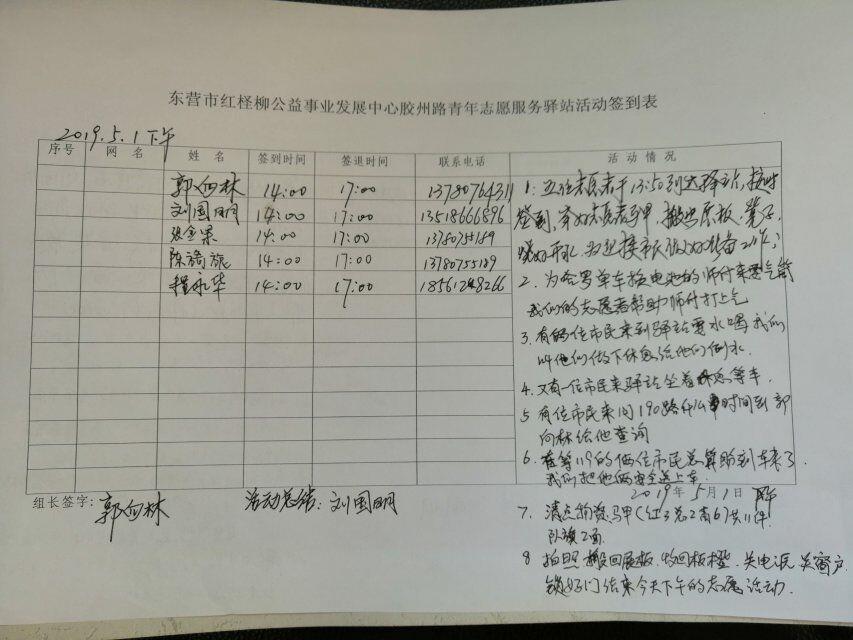 东营市红柽柳公益事业发展中心胶州路青年志愿服务驿站活动签到表
2019.5.1下午
序号 网名 姓名 签到时间 签退时间 联系电话 活动情况
郭向林 14:00 17:00 13780764311
刘国明 14:00 17:00 13518666896
张金泉 14:00 17:00 13780755189
陈旖旎 14:00 17:00 13780755189
程永华 14:00 17:00 18561248266
1. 五位志愿者于13:50到达驿站,按时
签到,穿好志愿者马甲,搬出展板、凳子,
烧好开水,为迎接市民做好准备工作;
2. 为哈罗单车换电池的师傅来
我们的志愿者帮助师傅打上气
3. 有俩位市民来到驿站要水喝我们
叫他们做下休息给他们倒水.
4. 又有一位市民来驿站坐着休息等车.
5 有位市民来问190路什么时间到郭
向林给他查询
6. 在等119的俩位市民总算盼到车来了
我们把他俩安全送上车.
2019年5月1日
组长签字: 郭向林 活动总结: 刘国明
7. 清点物资马甲(红3 2 6)共11件
队旗2面.
8 拍照 搬回展板. 收回板凳. 关电源 关窗户
锁好门结束今天下午的志愿活动.